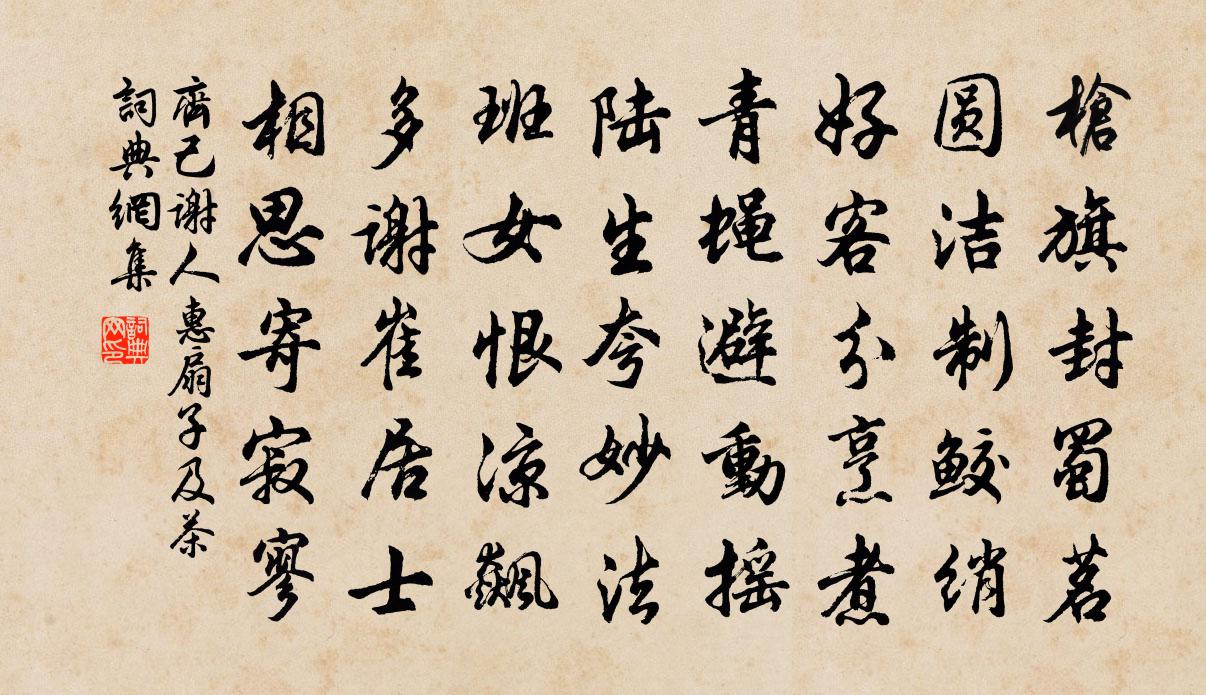 槍旗封蜀茗
圆洁制鮫绡
好客分烹煮
青蝇避動摇
陆生夸妙法
班女恨涼飆
多谢崔居士
相思寄寂寥
齊己谢人惠扇子及茶
詞典網集
詞典网印